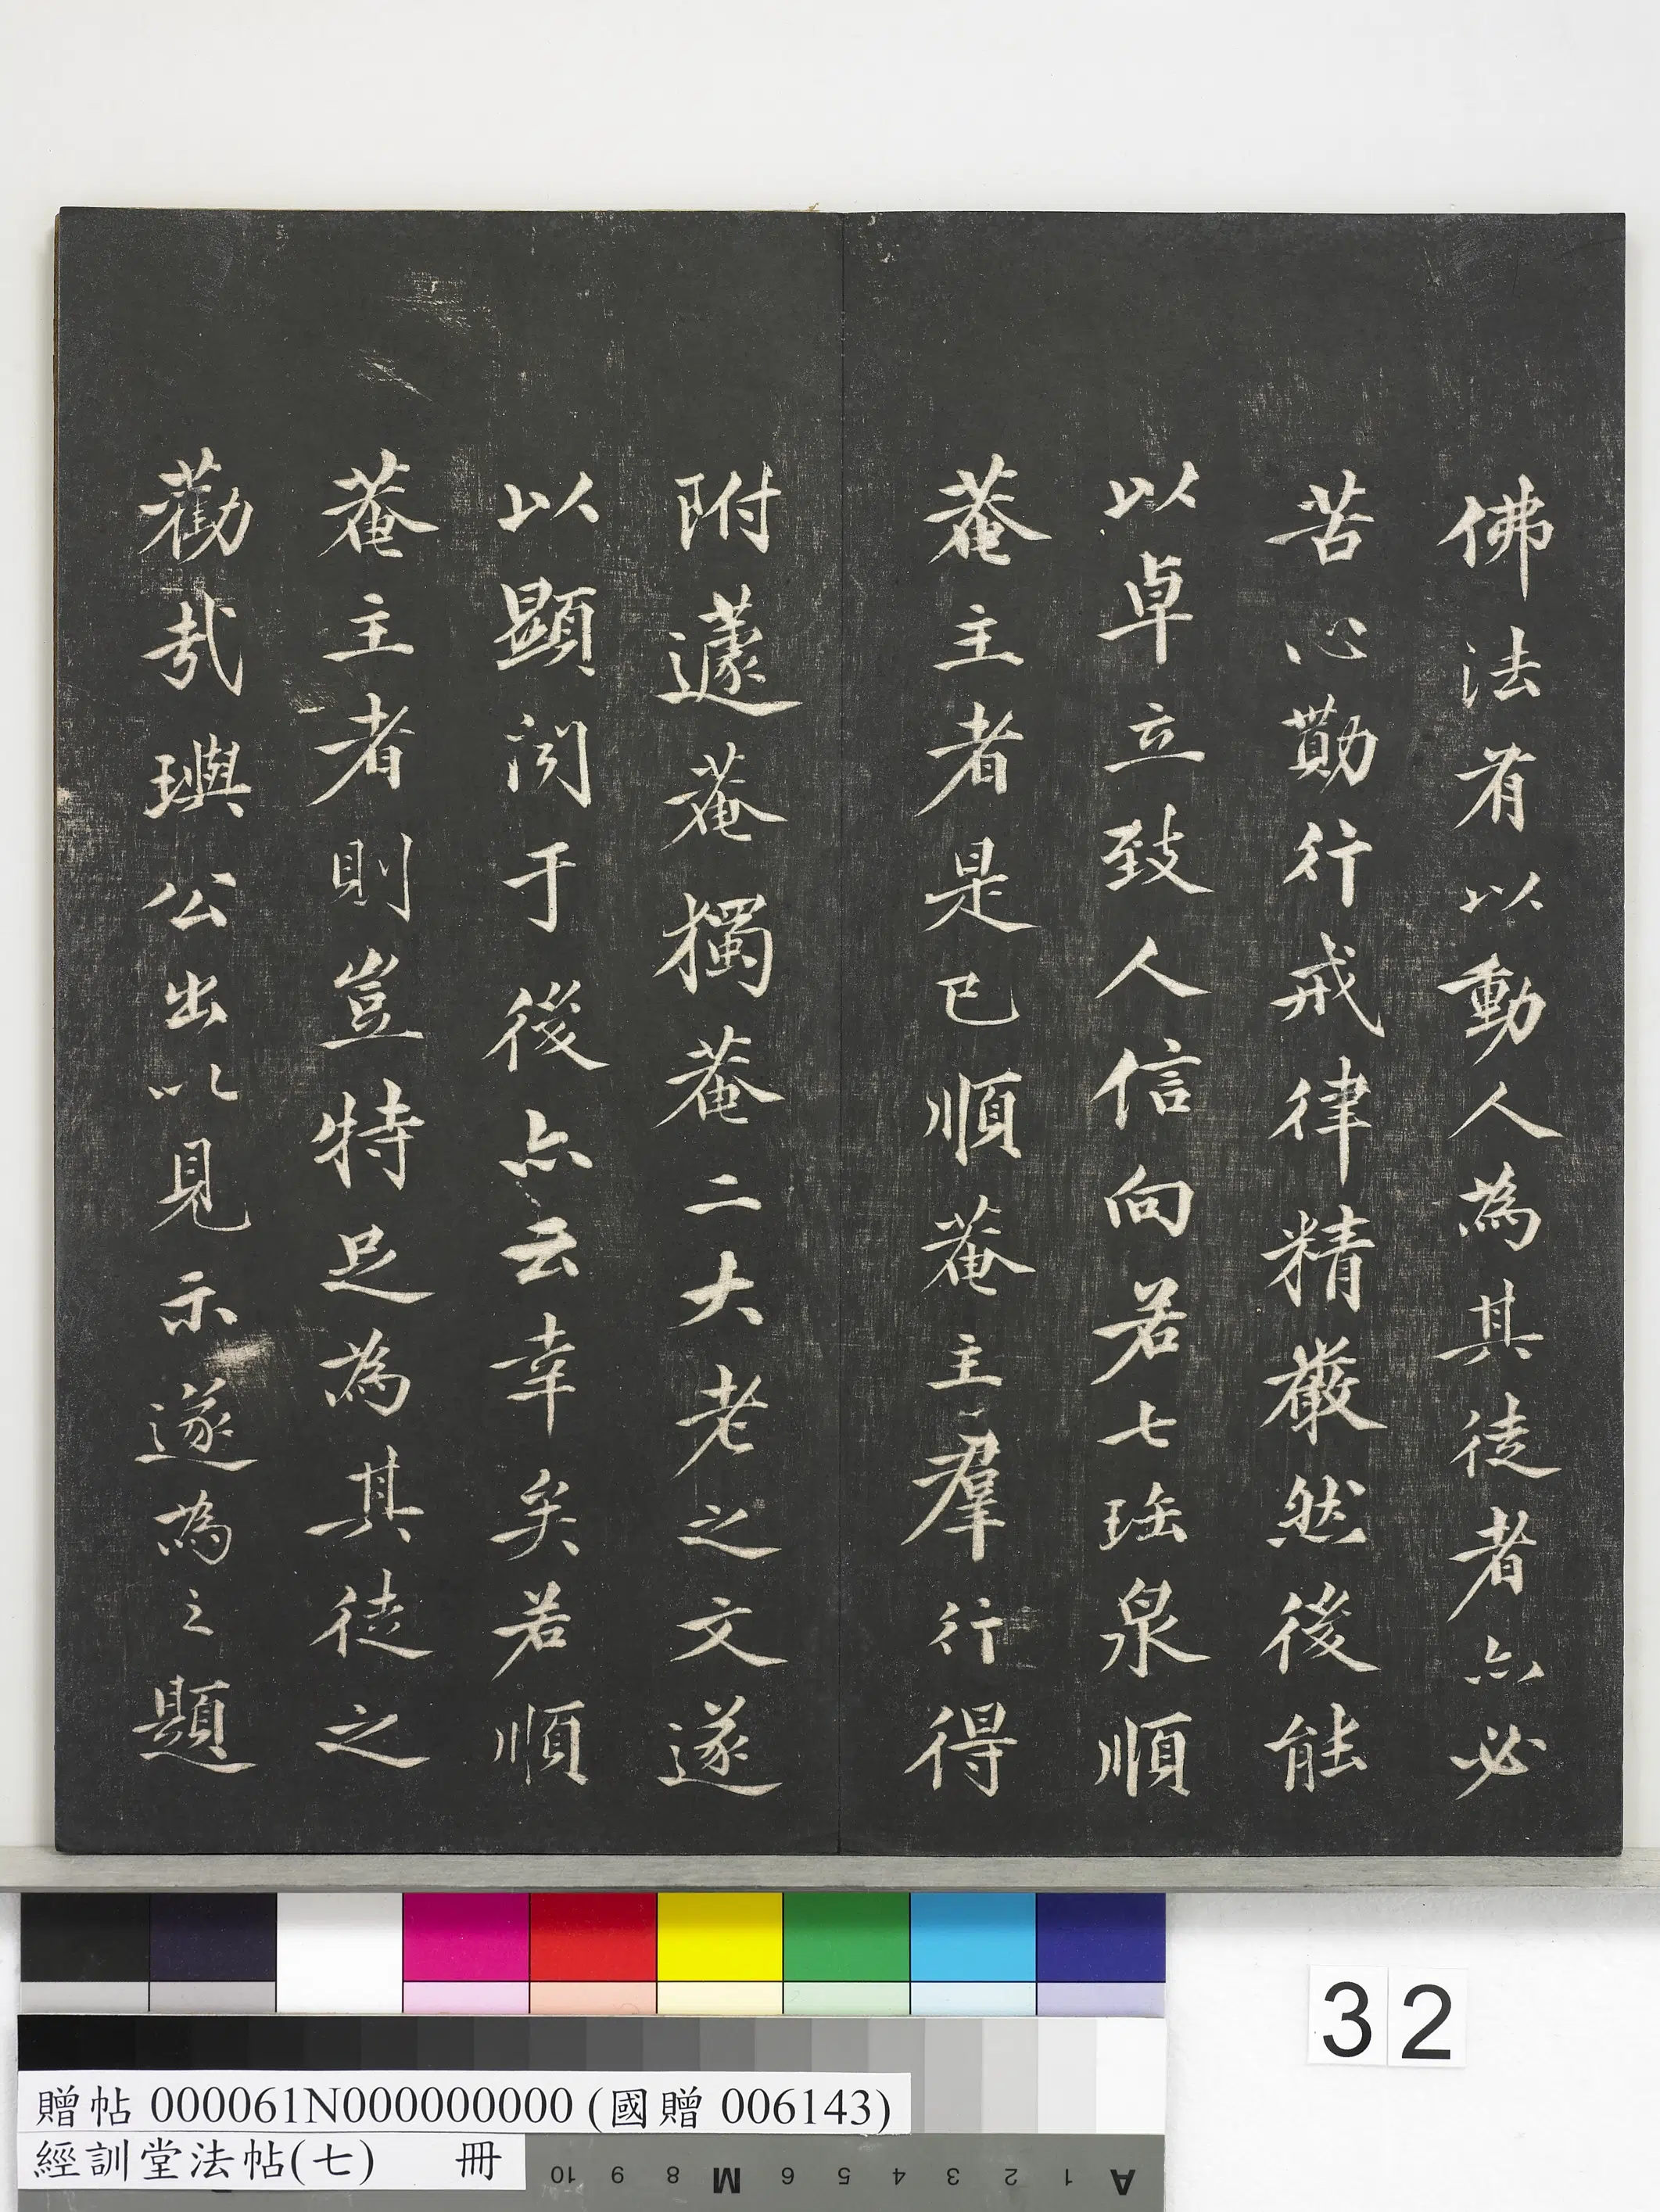 佛法有以動人為其徒者亦必
苦心勤行戒律精嚴然後能
以卓立致人信向若七瑤泉順
菴主者是已順菴主羣行得
附蘧菴獨菴二大老之文遂
以顯闻于後亦云幸矣若順
菴主者則豈特足為其徒之
勸哉璵公出以見示遂為之題
32
贈帖 000061N000000000 (國贈 006143)
經訓堂法帖(七) 冊
10 9 8 M 6 5 4 3 2 1 A